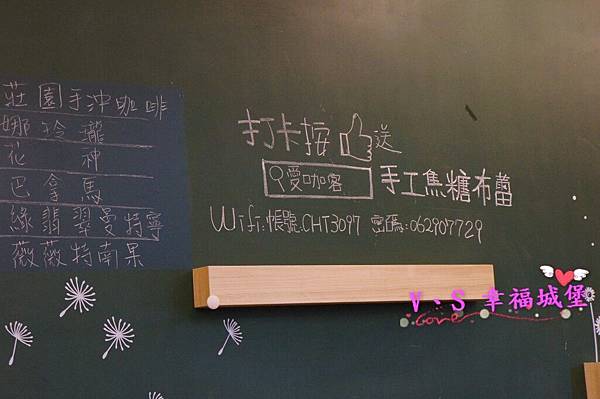 莊園手沖咖啡
娜玲瓏
花神
巴拿馬
綠翡翠曼特寧
薇薇特南果
打卡按 送
愛咖客 手工焦糖布蕾
Wifi:帳號:CHT3097 密碼:062907729
V、S 幸福城堡
Love